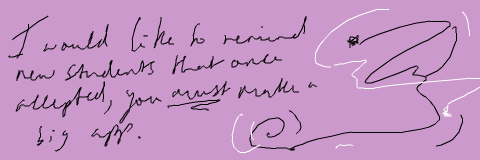 I would like to remind
new students that once
accepted, you must make a
big app.